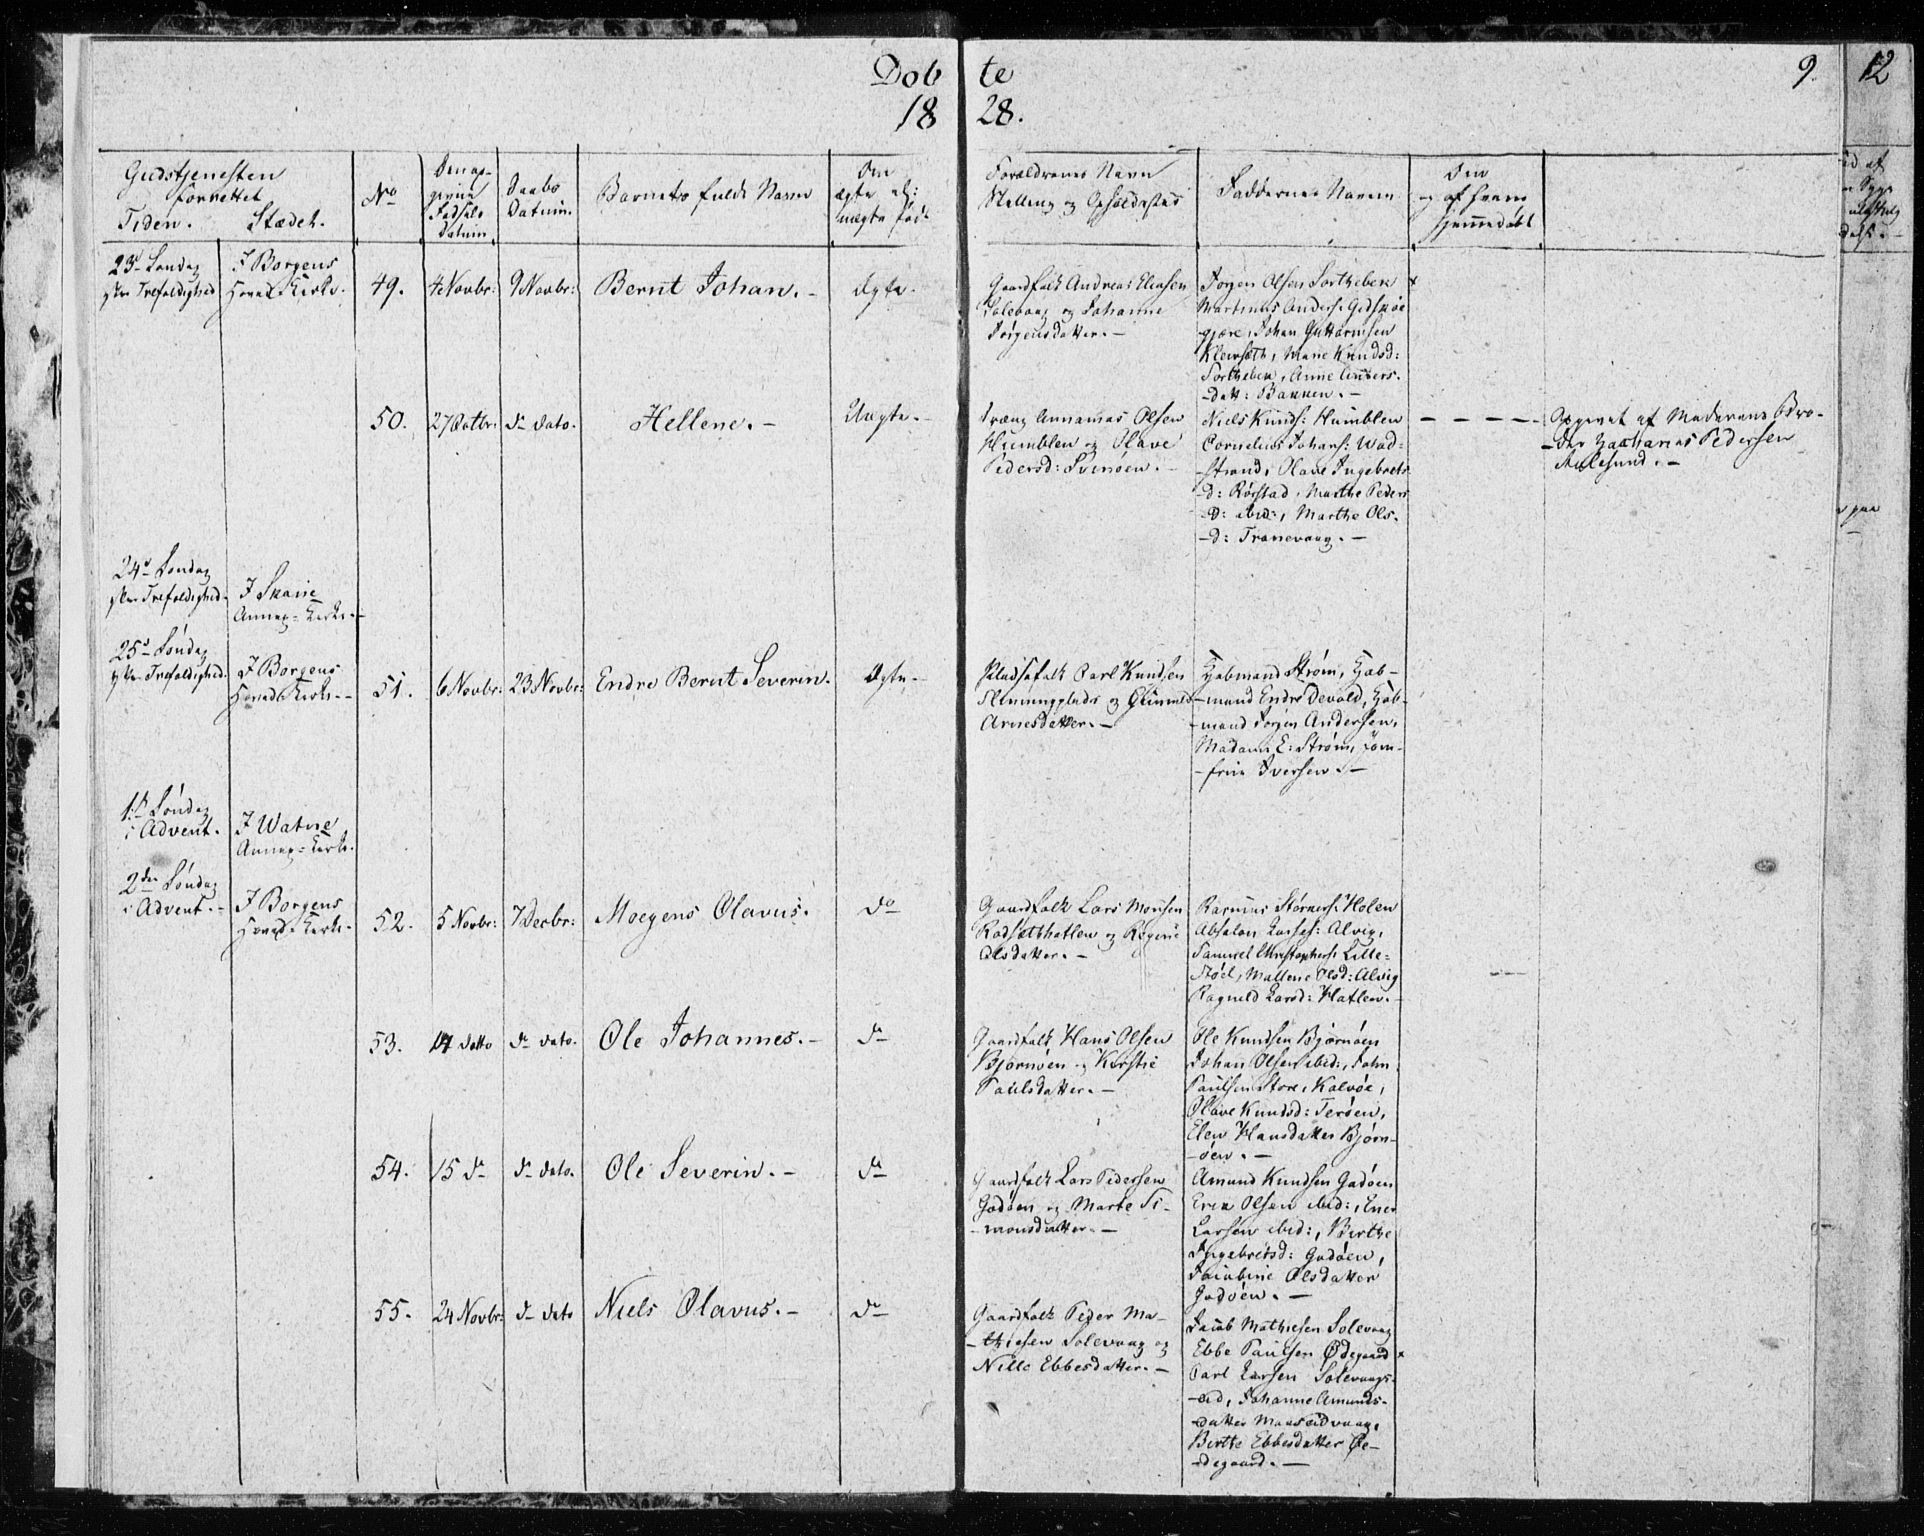 Døb te
18 28.
9.
12
Gudstjenesten
forrettet
Tiden. Stædet.
No
Den op-
givne
Fødsels
Datum
Daabs
Datum.
Barnets fulde Navn
Om
ægte el:
uægte født
Forældrenes Navn
Stilling og Opholdssted
Faddernes Navne
Om
og af hvem
hjemmedøbt
23d Søndag
efter Trefoldighed
I Borgens
Hoved-Kirke.
49.
4 Novbr:
9 Novbr:
Bernt Johan. -
Ægte.
Gaardfolk Andreas Eliasen
Solevaag og Johanne
Jørgensdatter. -
Jørgen Olsen
Martinus Anders:
Johan Guttormsen
Marie Knudsd:
Anne Anders-
-datt: Bakken. -
50.
27 Octbr:
do dato.
Hellene. -
Uægte. -
Olsen
Humblen og Olave
Pedersd: -
Niels Knuds: Humblen
Cornelius Johans: Wad-
-strand, Olave Ingebrets-
-d: Rørstad, Marthe Peders-
-d: ibid:, Marthe Ols-
-d: Tranevaag. -
- - - -
Opgivet af Moderens Bro-
-der Zacharias Pedersen
Aalesund. -
24d Søndag
efter Trefoldighed.
I Skoue
Annex-Kirke. -
25d Søndag
efter Trefoldighed.
I Borgens
Hoved-Kirke. -
51.
6 Novbr:
23 Novbr:
Endre Bernt Severin.
Ægte. -
Pladsfolk Carl Knudsen
og
Arnesdatter. -
Kjøbmand Strøm, Kjøb-
-mand Endre Devold, Kjøb-
-mand Jørgen Andersen,
Madame E: Strøm, Jom-
-frue Iversen. -
1ste Søndag
i Advent.
I Watne
Annex-Kirke.
2den Søndag
i Advent. -
I Borgens
Hoved-Kirke. -
52.
5 Novbr:
7 Decbr:
Moegens Olavus.
do
Gaardfolk Lars Monsen
og
Olsdatter. -
Rasmus Holen
Absalon Lasses: Alvig,
Samuel Christophers: Lille-
-Støel, Mallene Olsd: Alvig
Ragnild Larsd: Hatlen. -
53.
14 ditto
do dato.
Ole Johannes. -
do
Gaardfolk Hans Olsen
Bjørnøen og Kirstie
Paulsdatter. -
Ole Knudsen Bjørnøen
Johan Olsen ibid:, John
Paulsen Store Kalvøe,
Olave Knudsd: Terøen,
Elen Hansdatter Bjørn-
-øen. -
54.
15 do
do dato.
Ole Severin. -
do
Gaardfolk Lars Pedersen
Godøen og Marte Si-
-monsdatter. -
Amund Knudsen Godøen
Erik Olsen ibid:, Iver
Larsen ibid:, Birthe
Ingebretsd: Godøen,
Jacobine Olsdatter
Godøen. -
55.
24 Novbr:
do dato
Niels Olavus. -
do
Gaardfolk Peder Ma-
-thiesen Solevaag og
Nille Ebbesdatter. -
Jacob Mathiesen Solevaag
Ebbe Paulsen Ødegaard
Carl Larsen Solevaags-
-eid, Johanne Amunds-
-datter Maaseidvaag,
Birthe Ebbesdatter Øe-
-degaard. -